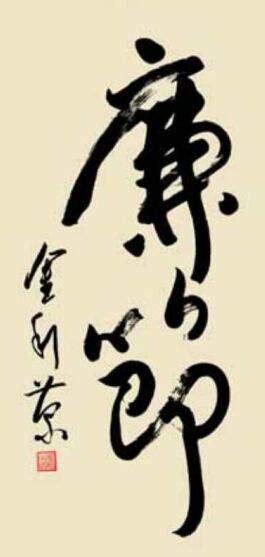 廉節
金利